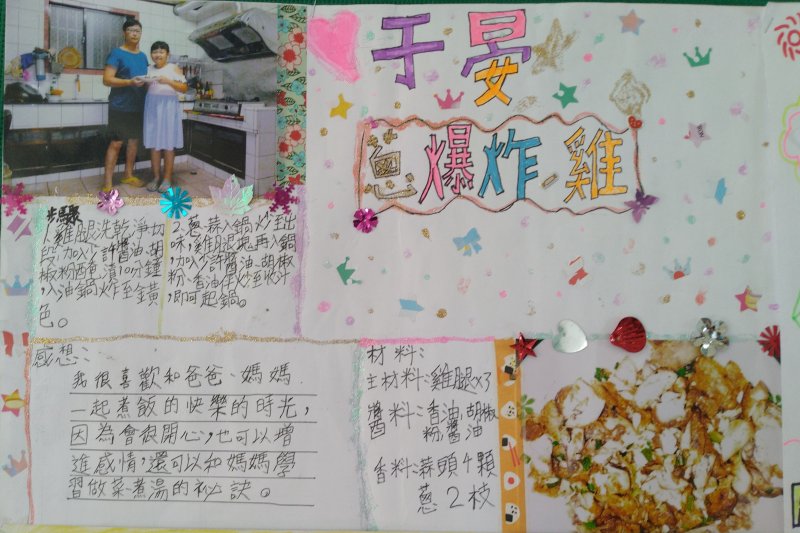 于晏
蔥爆炸雞
步驟
1.雞腿洗乾淨切
段,加入少許醬油、胡
椒粉醃漬10分鐘
,入油鍋炸至黃
色。
2.蔥、蒜入鍋炒至出
味,雞腿塊再入鍋
,加入少許醬油、胡椒
粉、香油拌炒至收汁
,即可起鍋。
感想:
我很喜歡和爸爸、媽媽
一起煮飯的快樂的時光,
因為會很開心,也可以增
進感情,還可以和媽媽學
習做菜、煮湯的祕訣。
材料:
主材料:雞腿x3
醬料:香油、胡椒
粉、醬油
香料:蒜頭4顆
蔥2枝